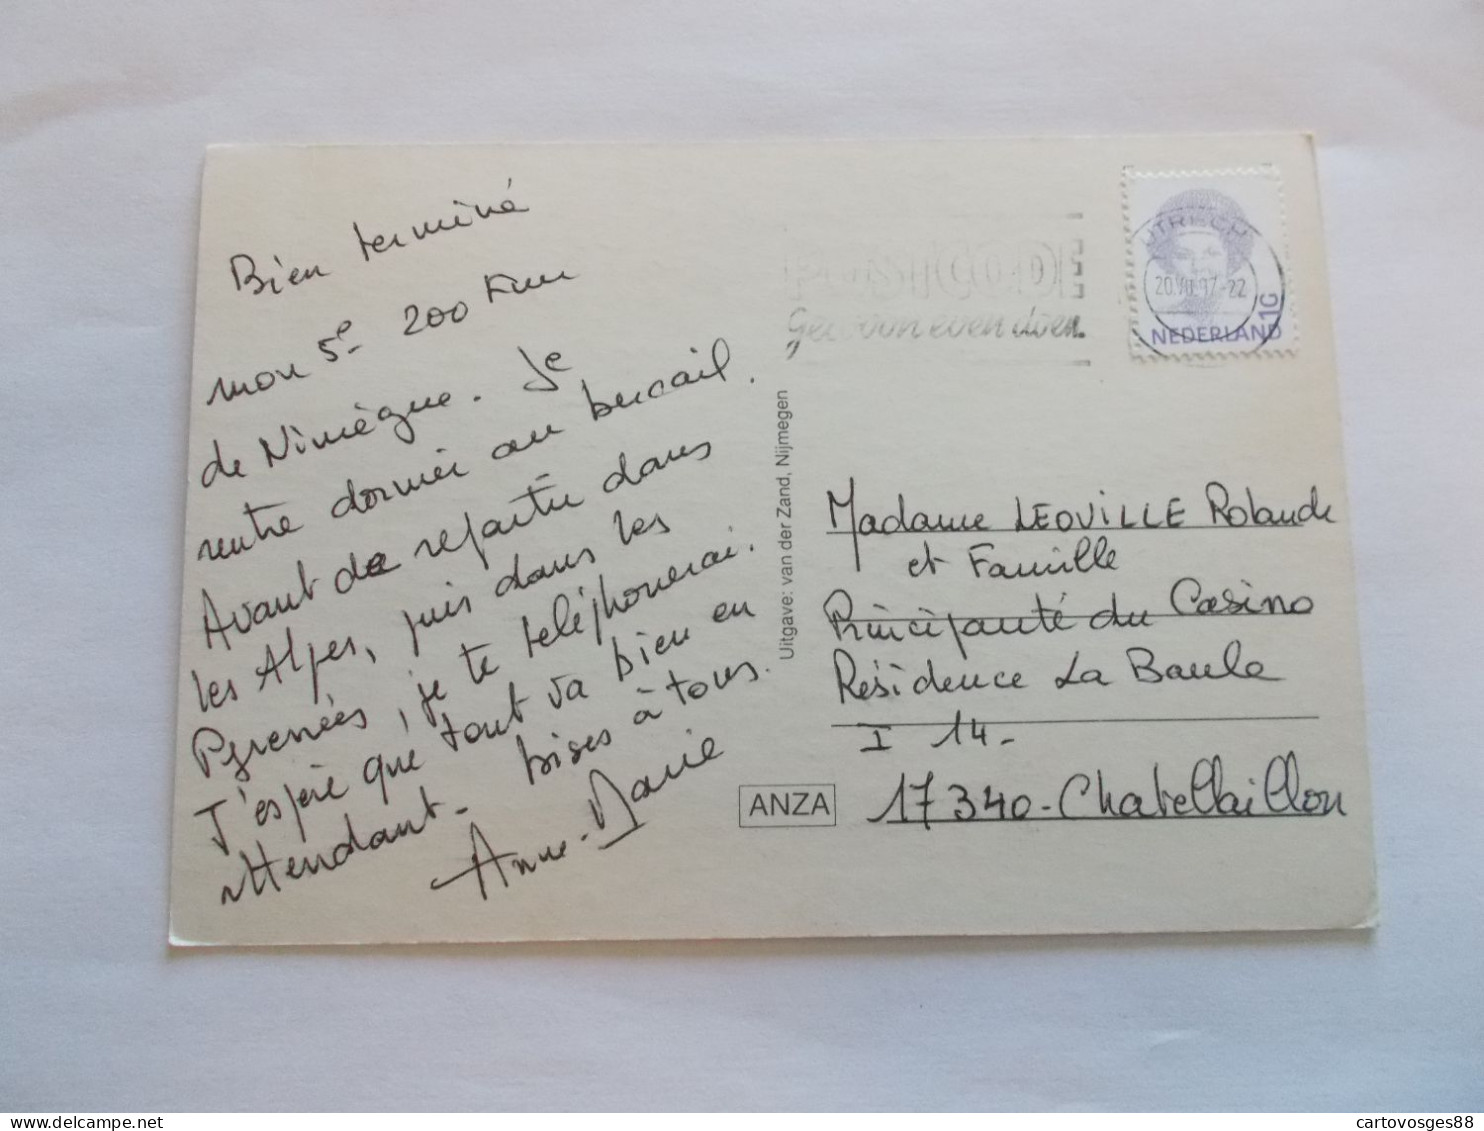 Bien terminé
mon 5e 200 Km
de Nimègue. Je
rentre dormir au bercail.
Avant de repartir dans
les Alpes, puis dans les
Pyrenées, je te téléphonerai.
J'espère que tout va bien en
attendant - bises à tous.
Anne-Marie
Uitgave: van der Zand, Nijmegen
ANZA
POSTCODE
Gewoon even doen.
UTRECHT
20.VII.97-22
NEDERLAND
1G
Madame LEOVILLE Rolande
et Famille
Principauté du Casino
Résidence La Baule
I 14-
17340-Chatellaillon
cartovosges88